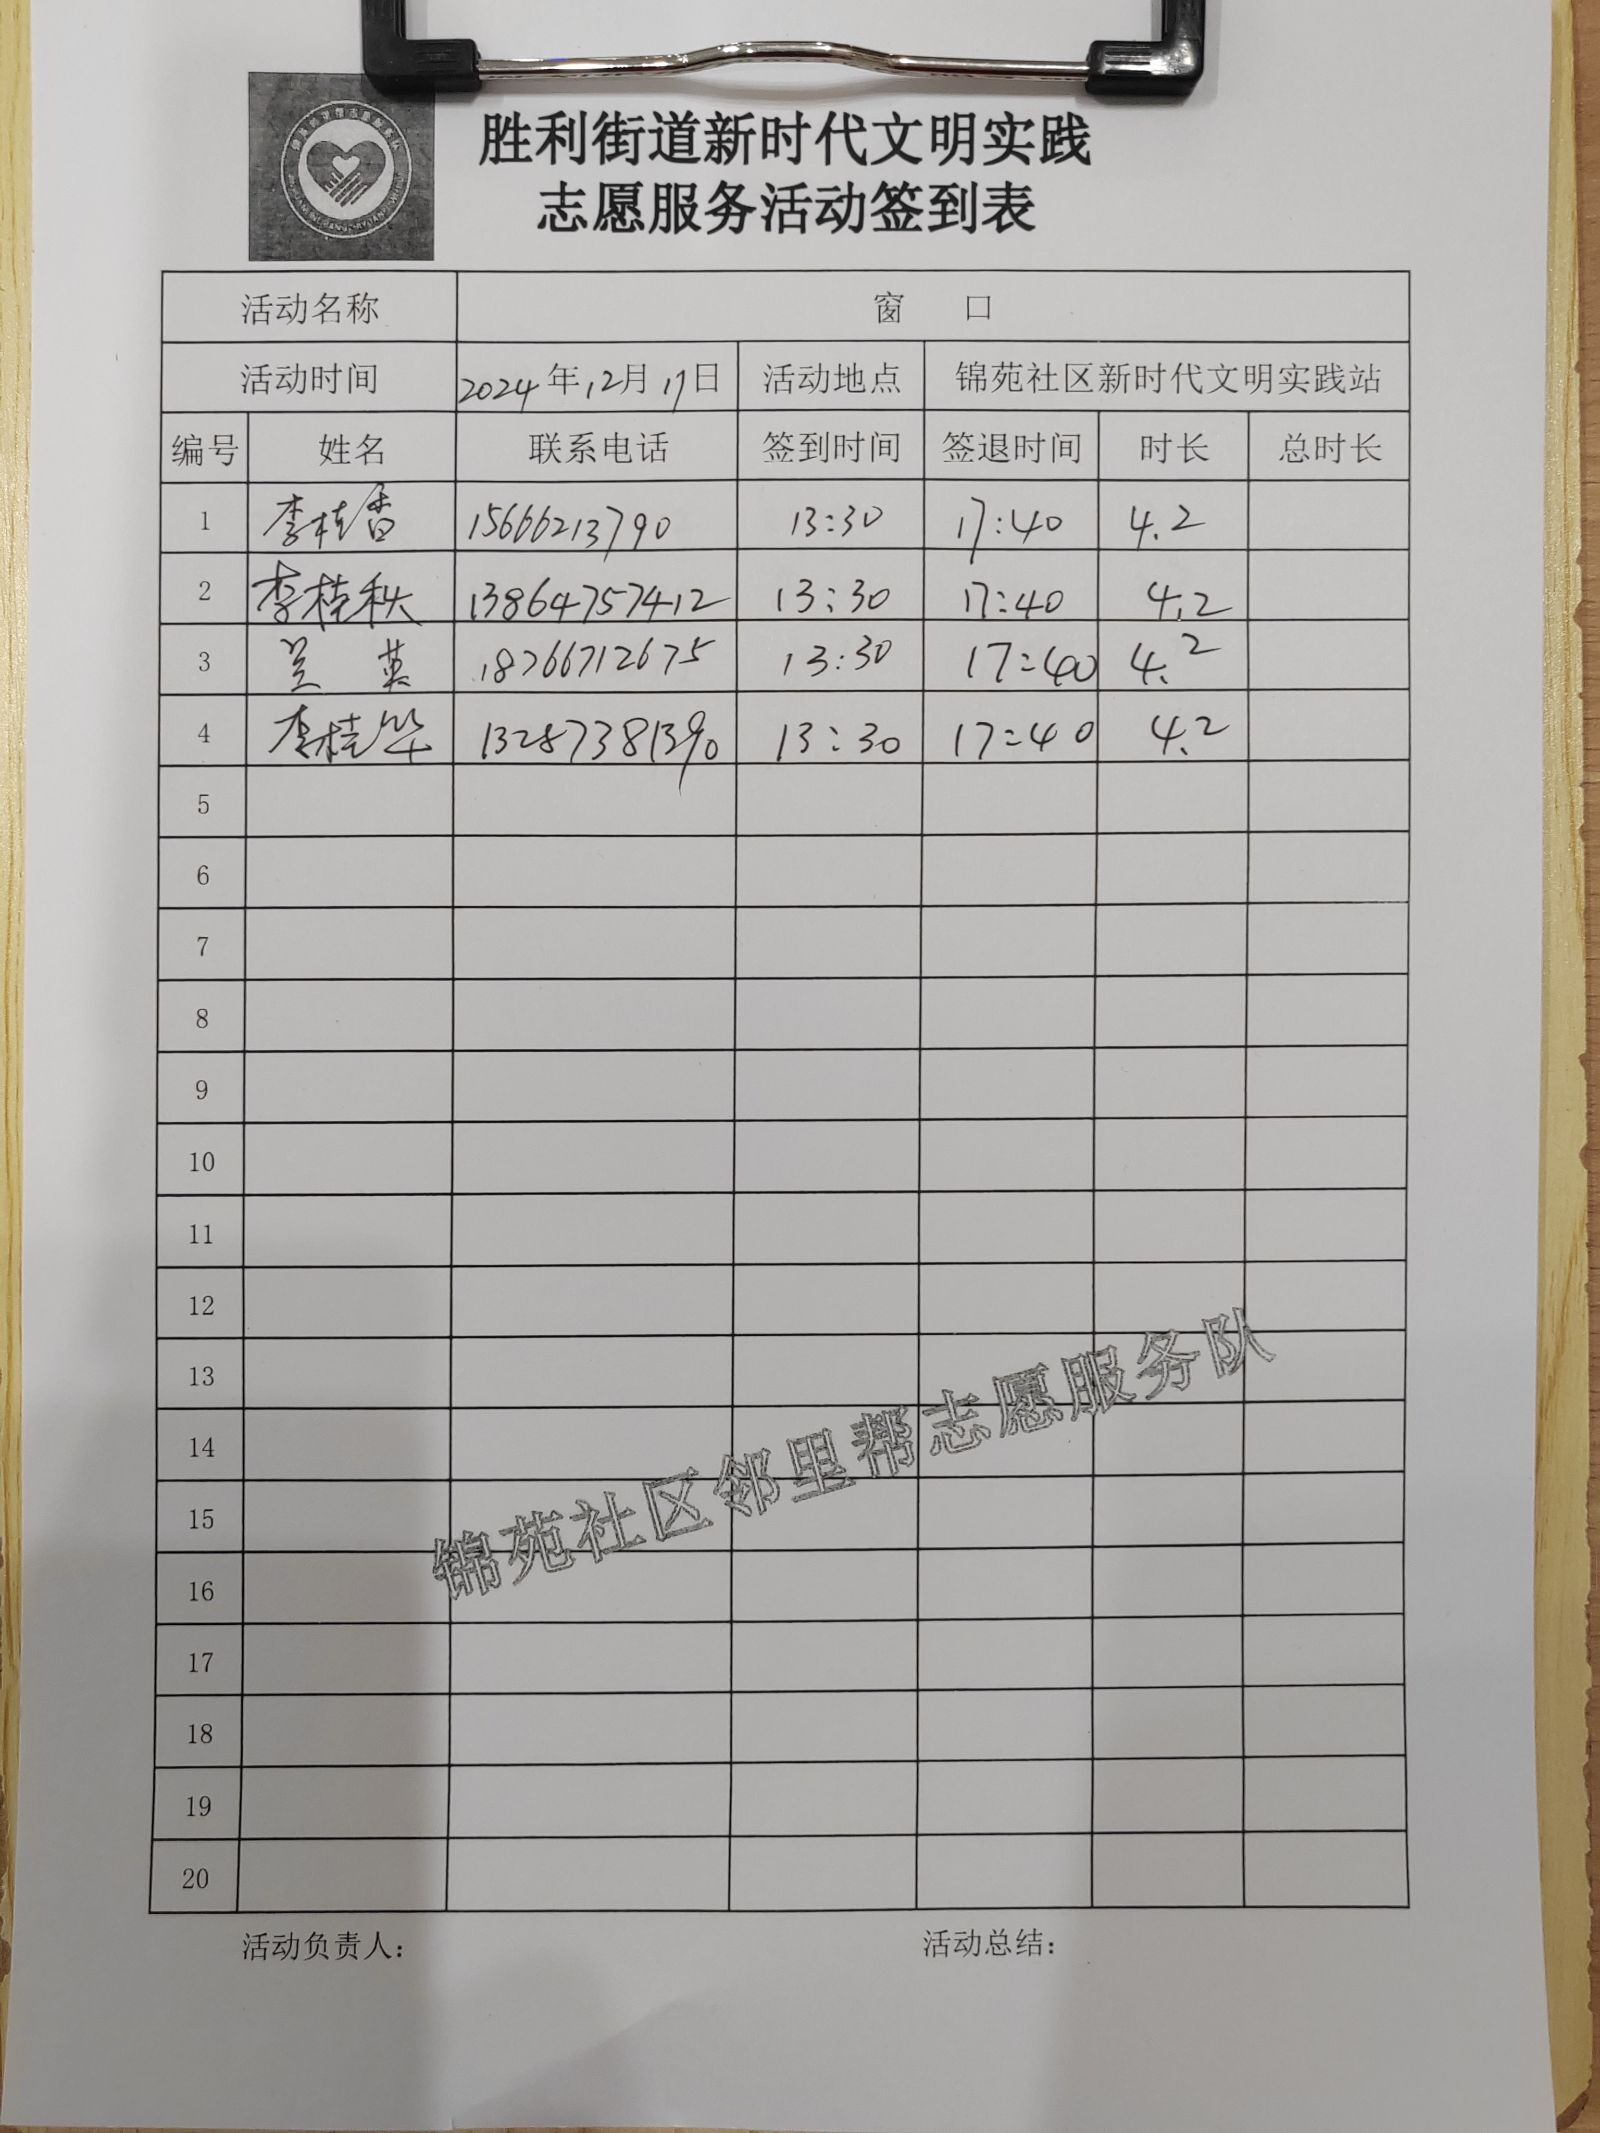 胜利街道新时代文明实践
志愿服务活动签到表
活动名称 窗 口
活动时间 2024年12月17日 活动地点 锦苑社区新时代文明实践站
编号 姓名 联系电话 签到时间 签退时间 时长 总时长
1 李桂香 15666213790 13:30 17:40 4.2
2 李桂秋 13864757412 13:30 17:40 4.2
3 兰 英 18766712675 13:30 17:40 4.2
4 李桂华 13287381390 13:30 17:40 4.2
5
6
7
8
9
10
11
12
13
14
15
16
17
18
19
20
锦苑社区邻里帮志愿服务队
活动负责人: 活动总结: